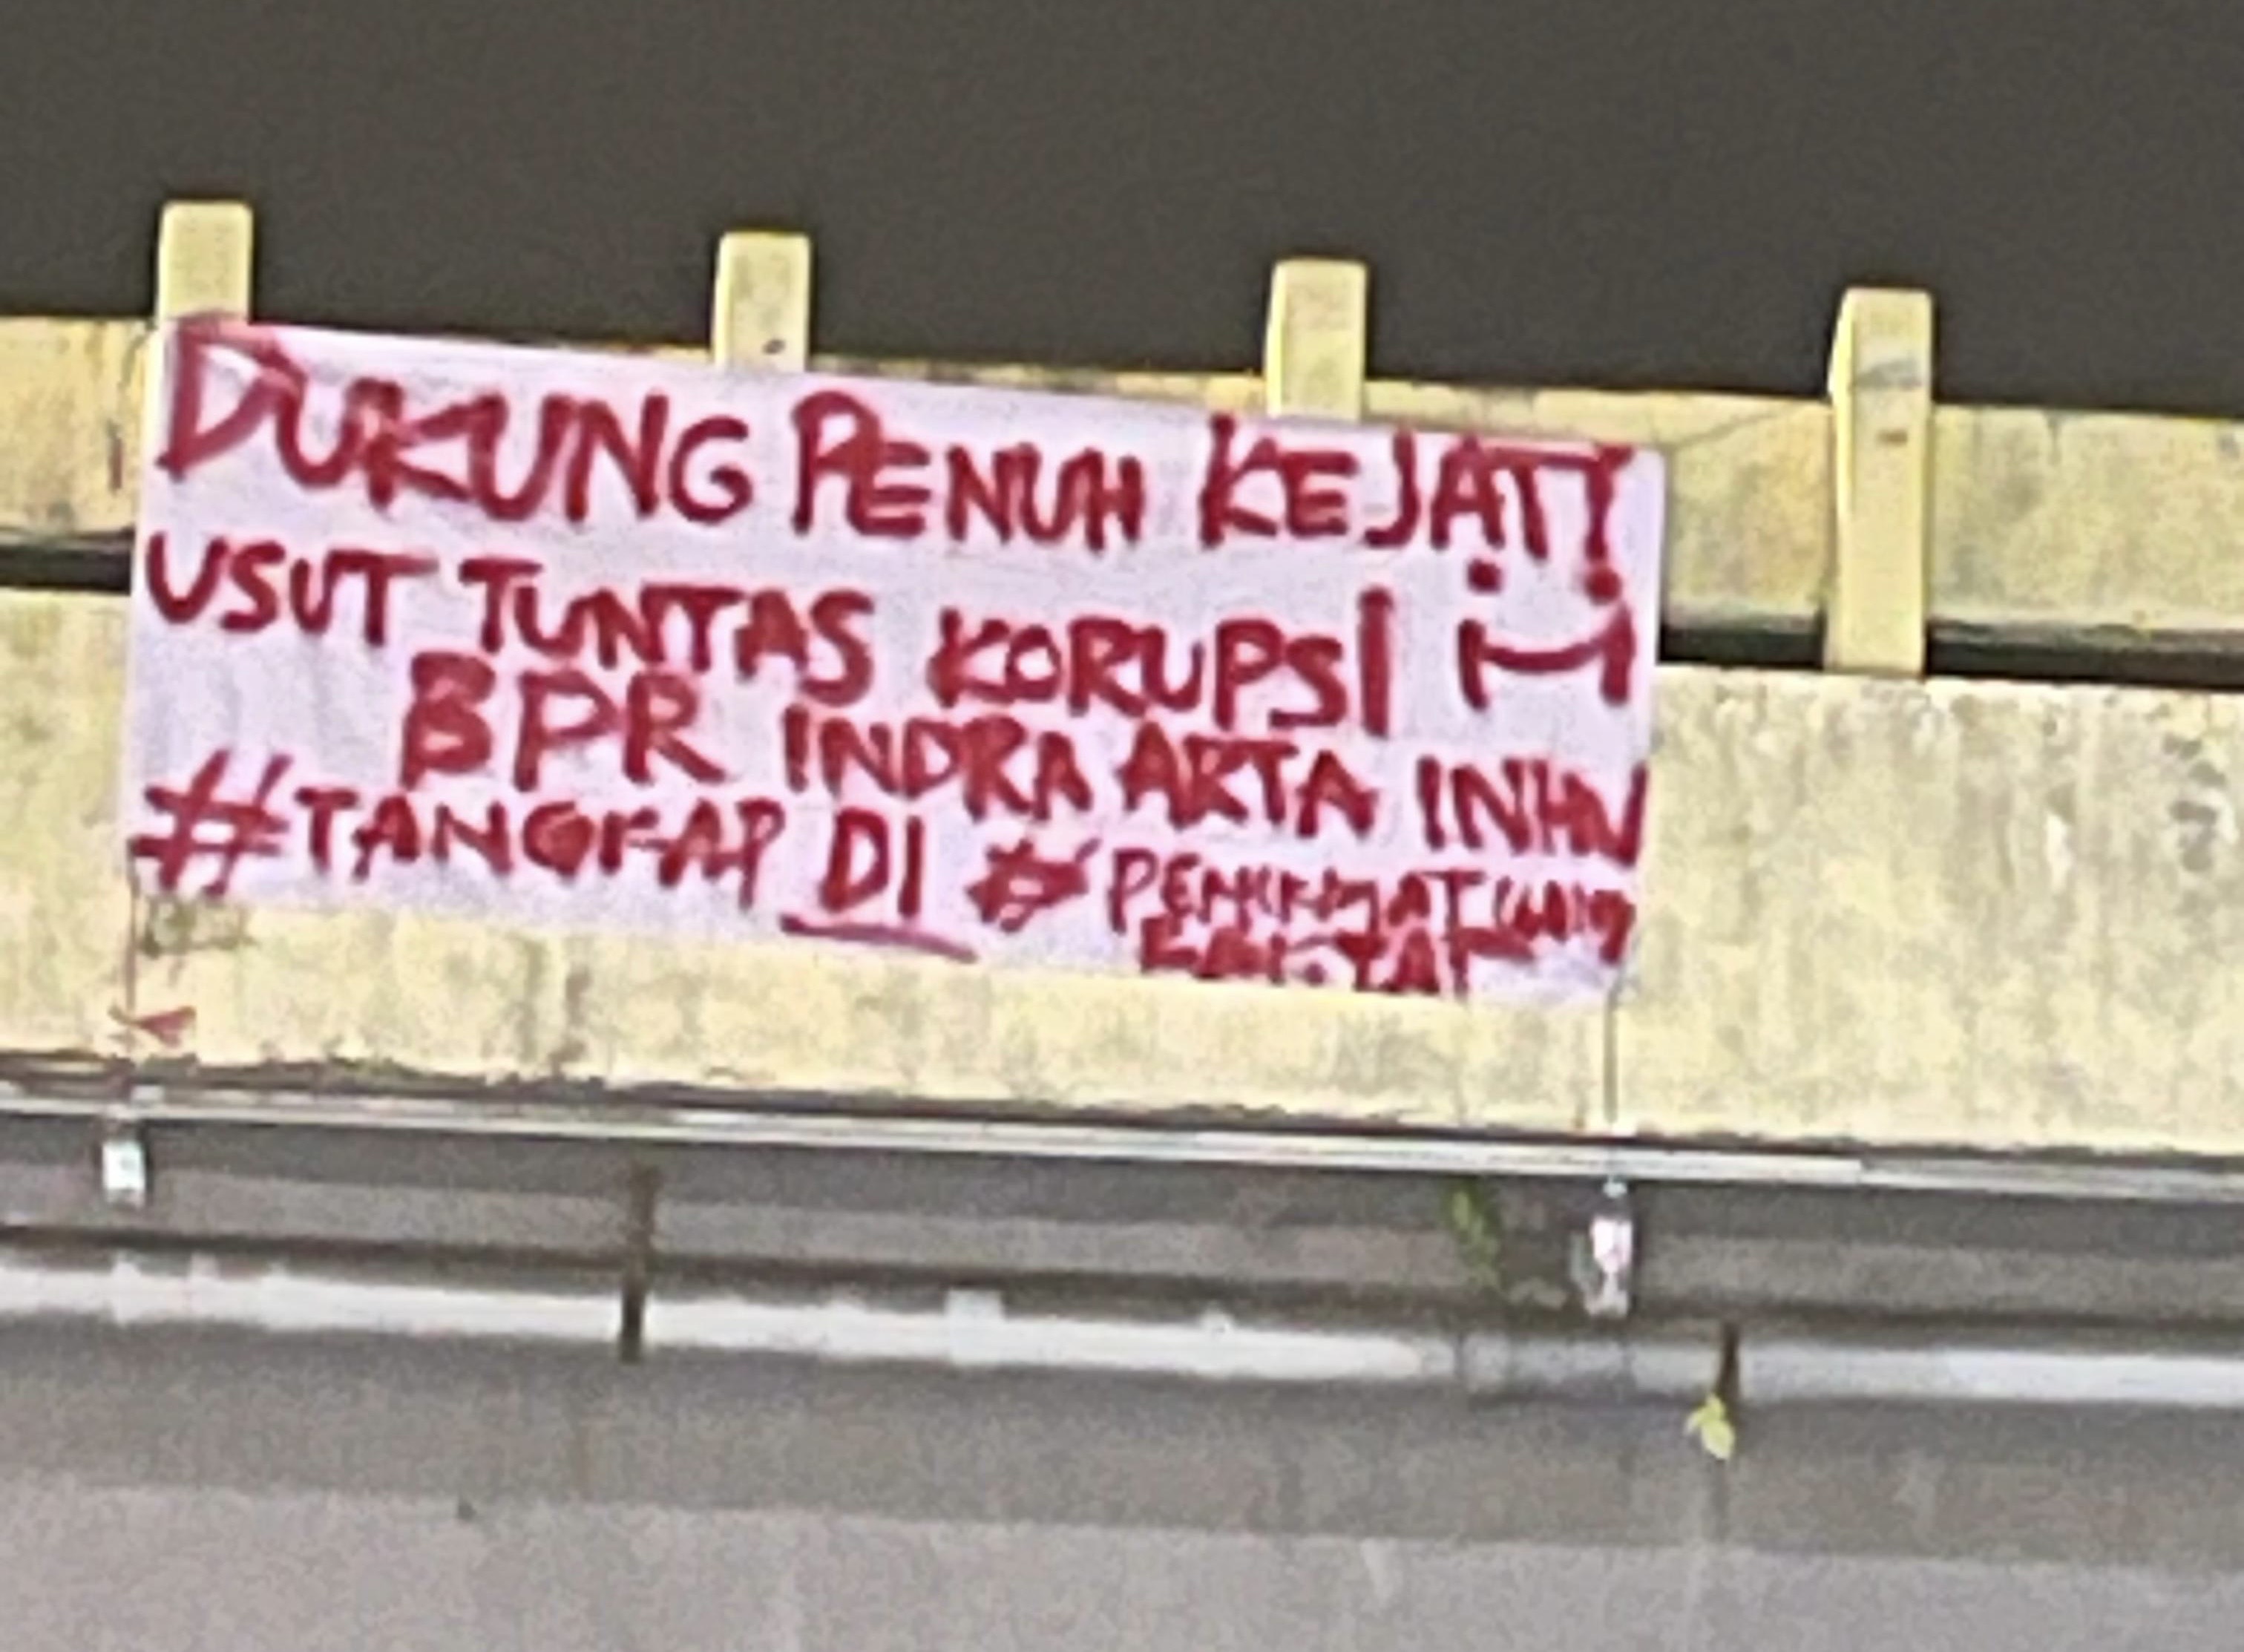 DUKUNG PENUH KEJATI
USUT TUNTAS KORUPSI !!
BPR INDRA ARTA INHU
#TANGKAP DI # PENIKMAT UANG